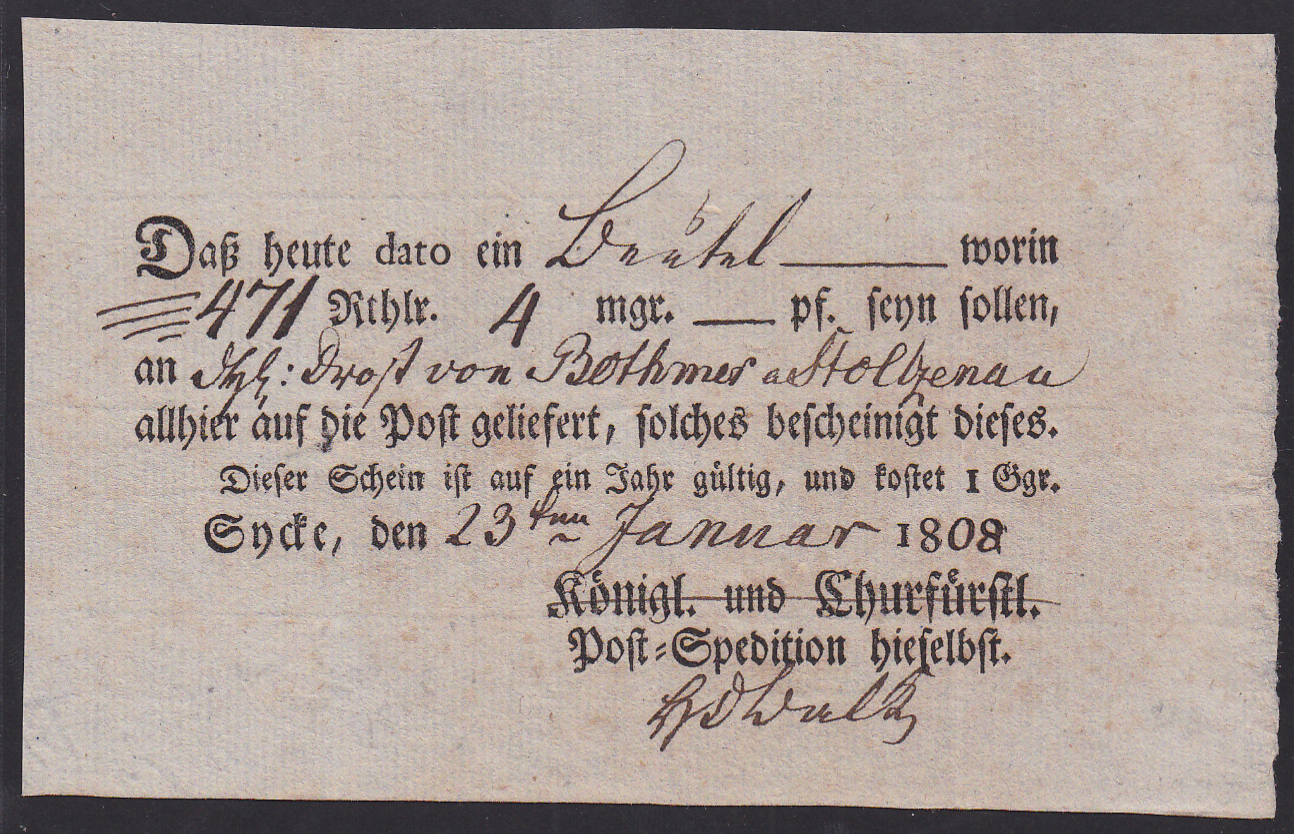 Daß heute dato ein Beutel — worin
471 Rthlr. 4 mgr. — pf. seyn sollen,
an Drost von Bothmer a Stoltzenau
allhier auf die Post geliefert, solches bescheinigt dieses.
Dieser Schein ist auf ein Jahr gültig, und kostet 1 Ggr.
Sycke, den 23ten Januar 1808
Königl. und Churfürstl.
Post-Spedition hieselbst.